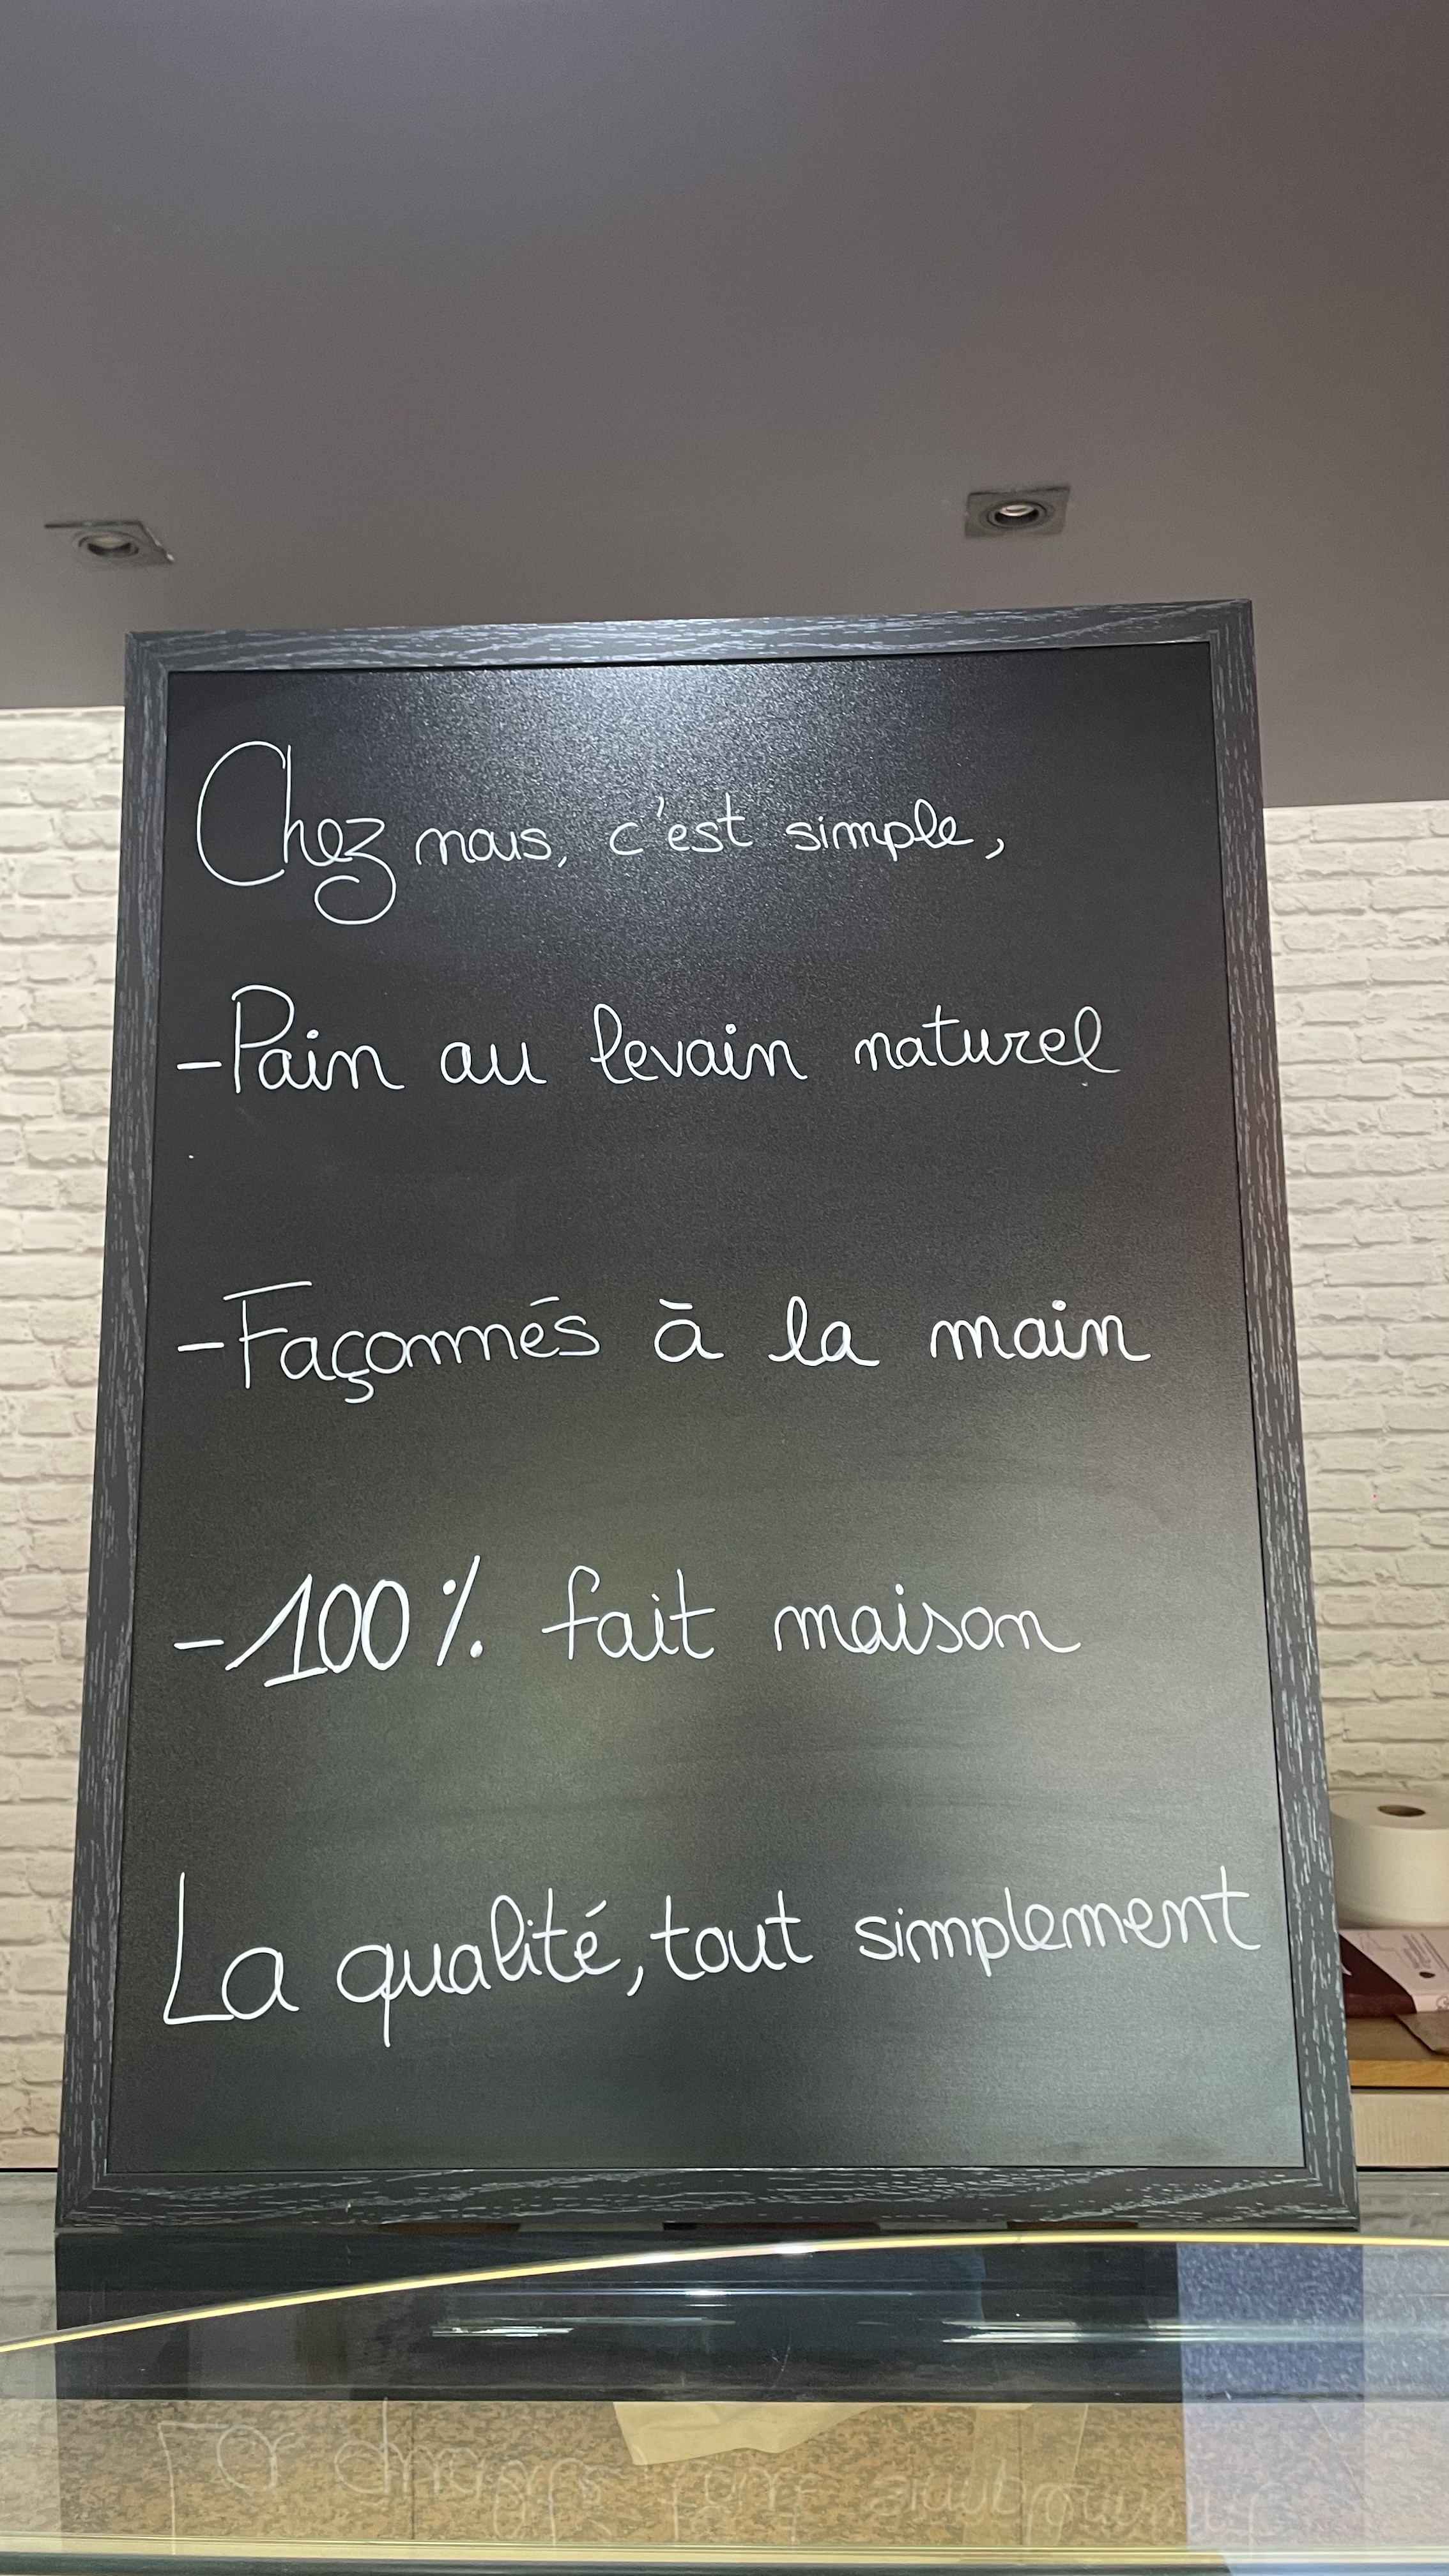 Chez nous, c'est simple,
-Pain au levain naturel
-Façonnés à la main
-100% fait maison
La qualité, tout simplement